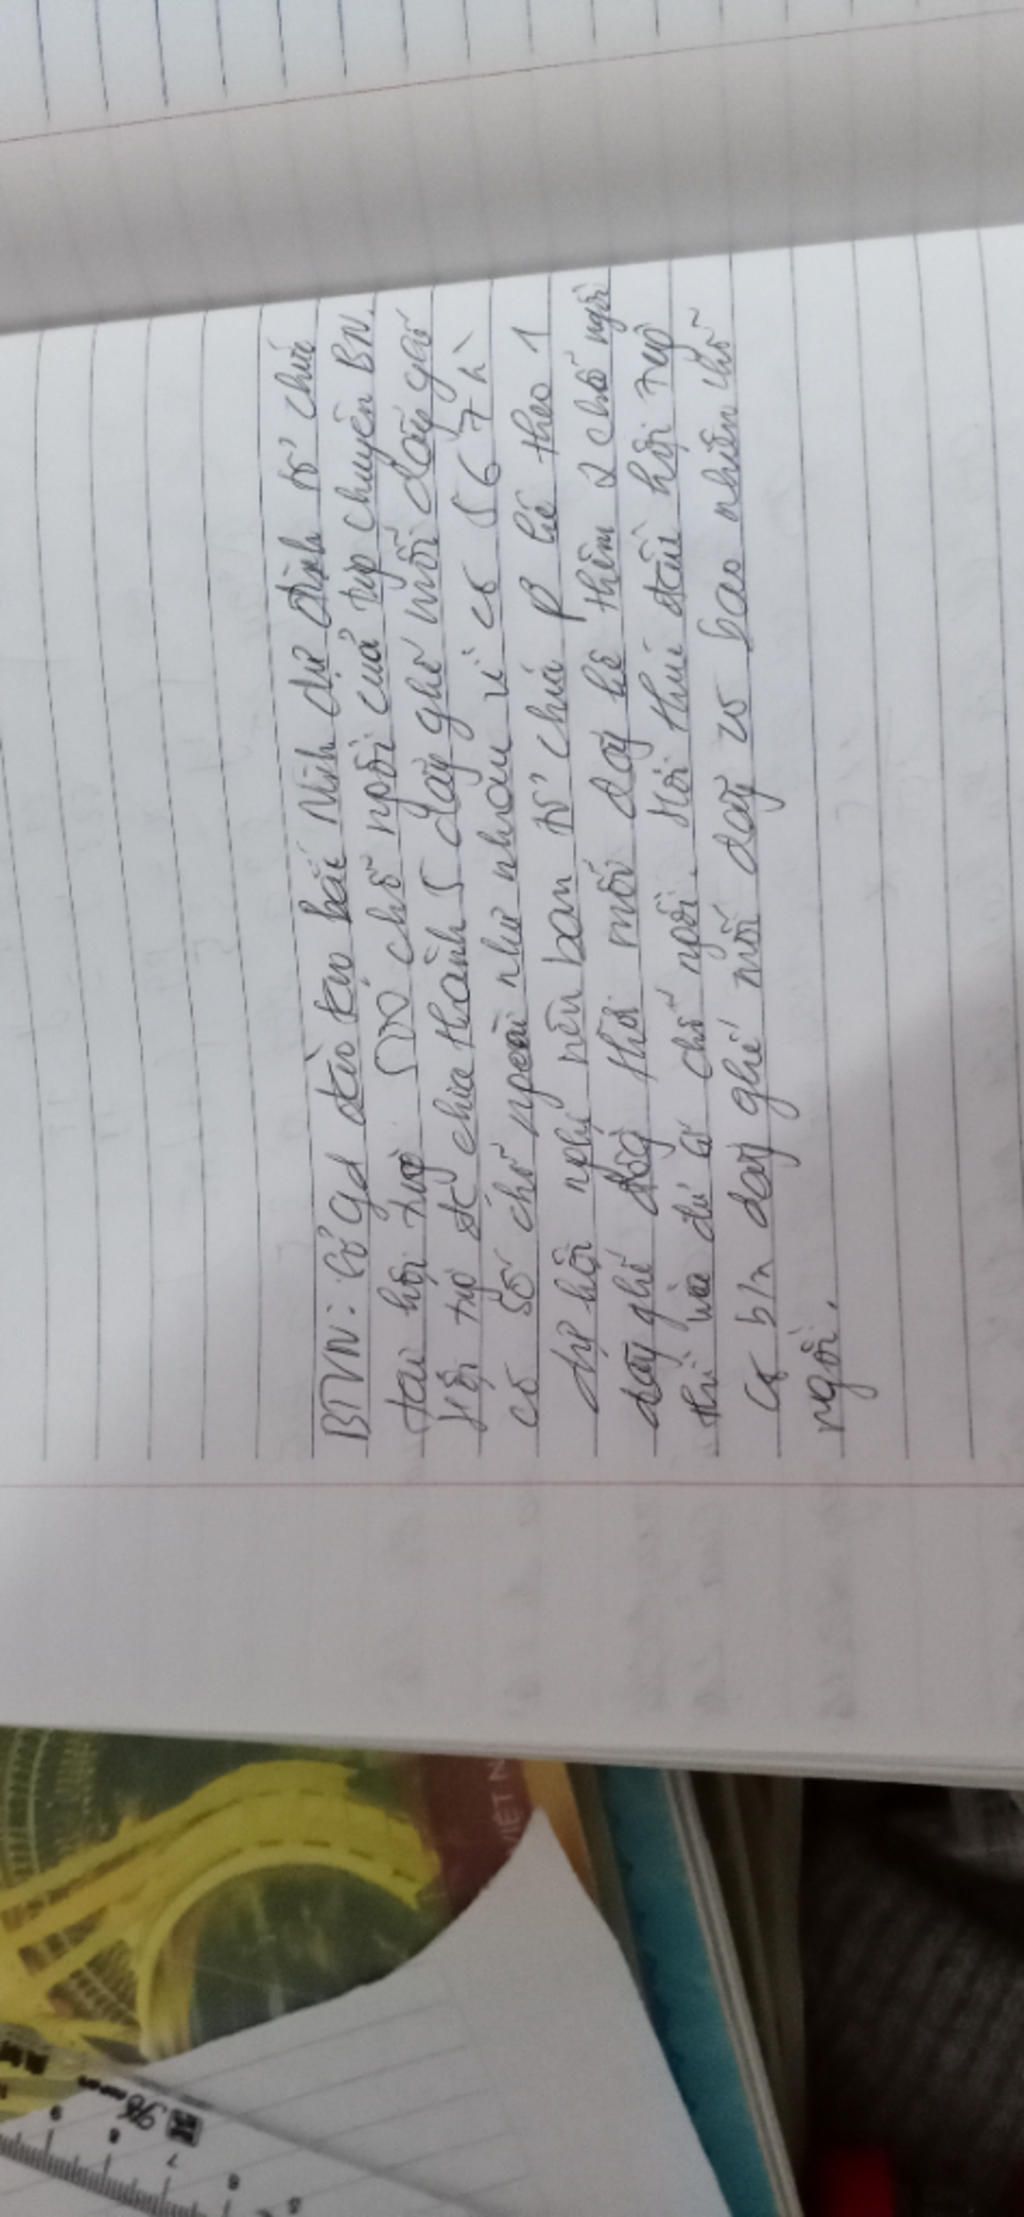 BTVN: Sở Gd đào tạo bắc Ninh dự định tổ chức
tại hội trường 500 chỗ ngồi của trg chuyên BN.
Hội trg đc chia thành 5 dãy ghế mỗi dãy ghế
có số chỗ ngồi như nhau vì có 567 h
dự hội nghị nên ban tổ chức p kê theo 1
dãy ghế đồng thời mỗi dãy kê thêm 2 chỗ ngồi
thì vừa đủ chỗ ngồi. Hỏi thực đầu hội trg
có b/n dãy ghế mỗi dãy có bao nhiêu chỗ
ngồi.
VIỆT N
9
8
7
6
5